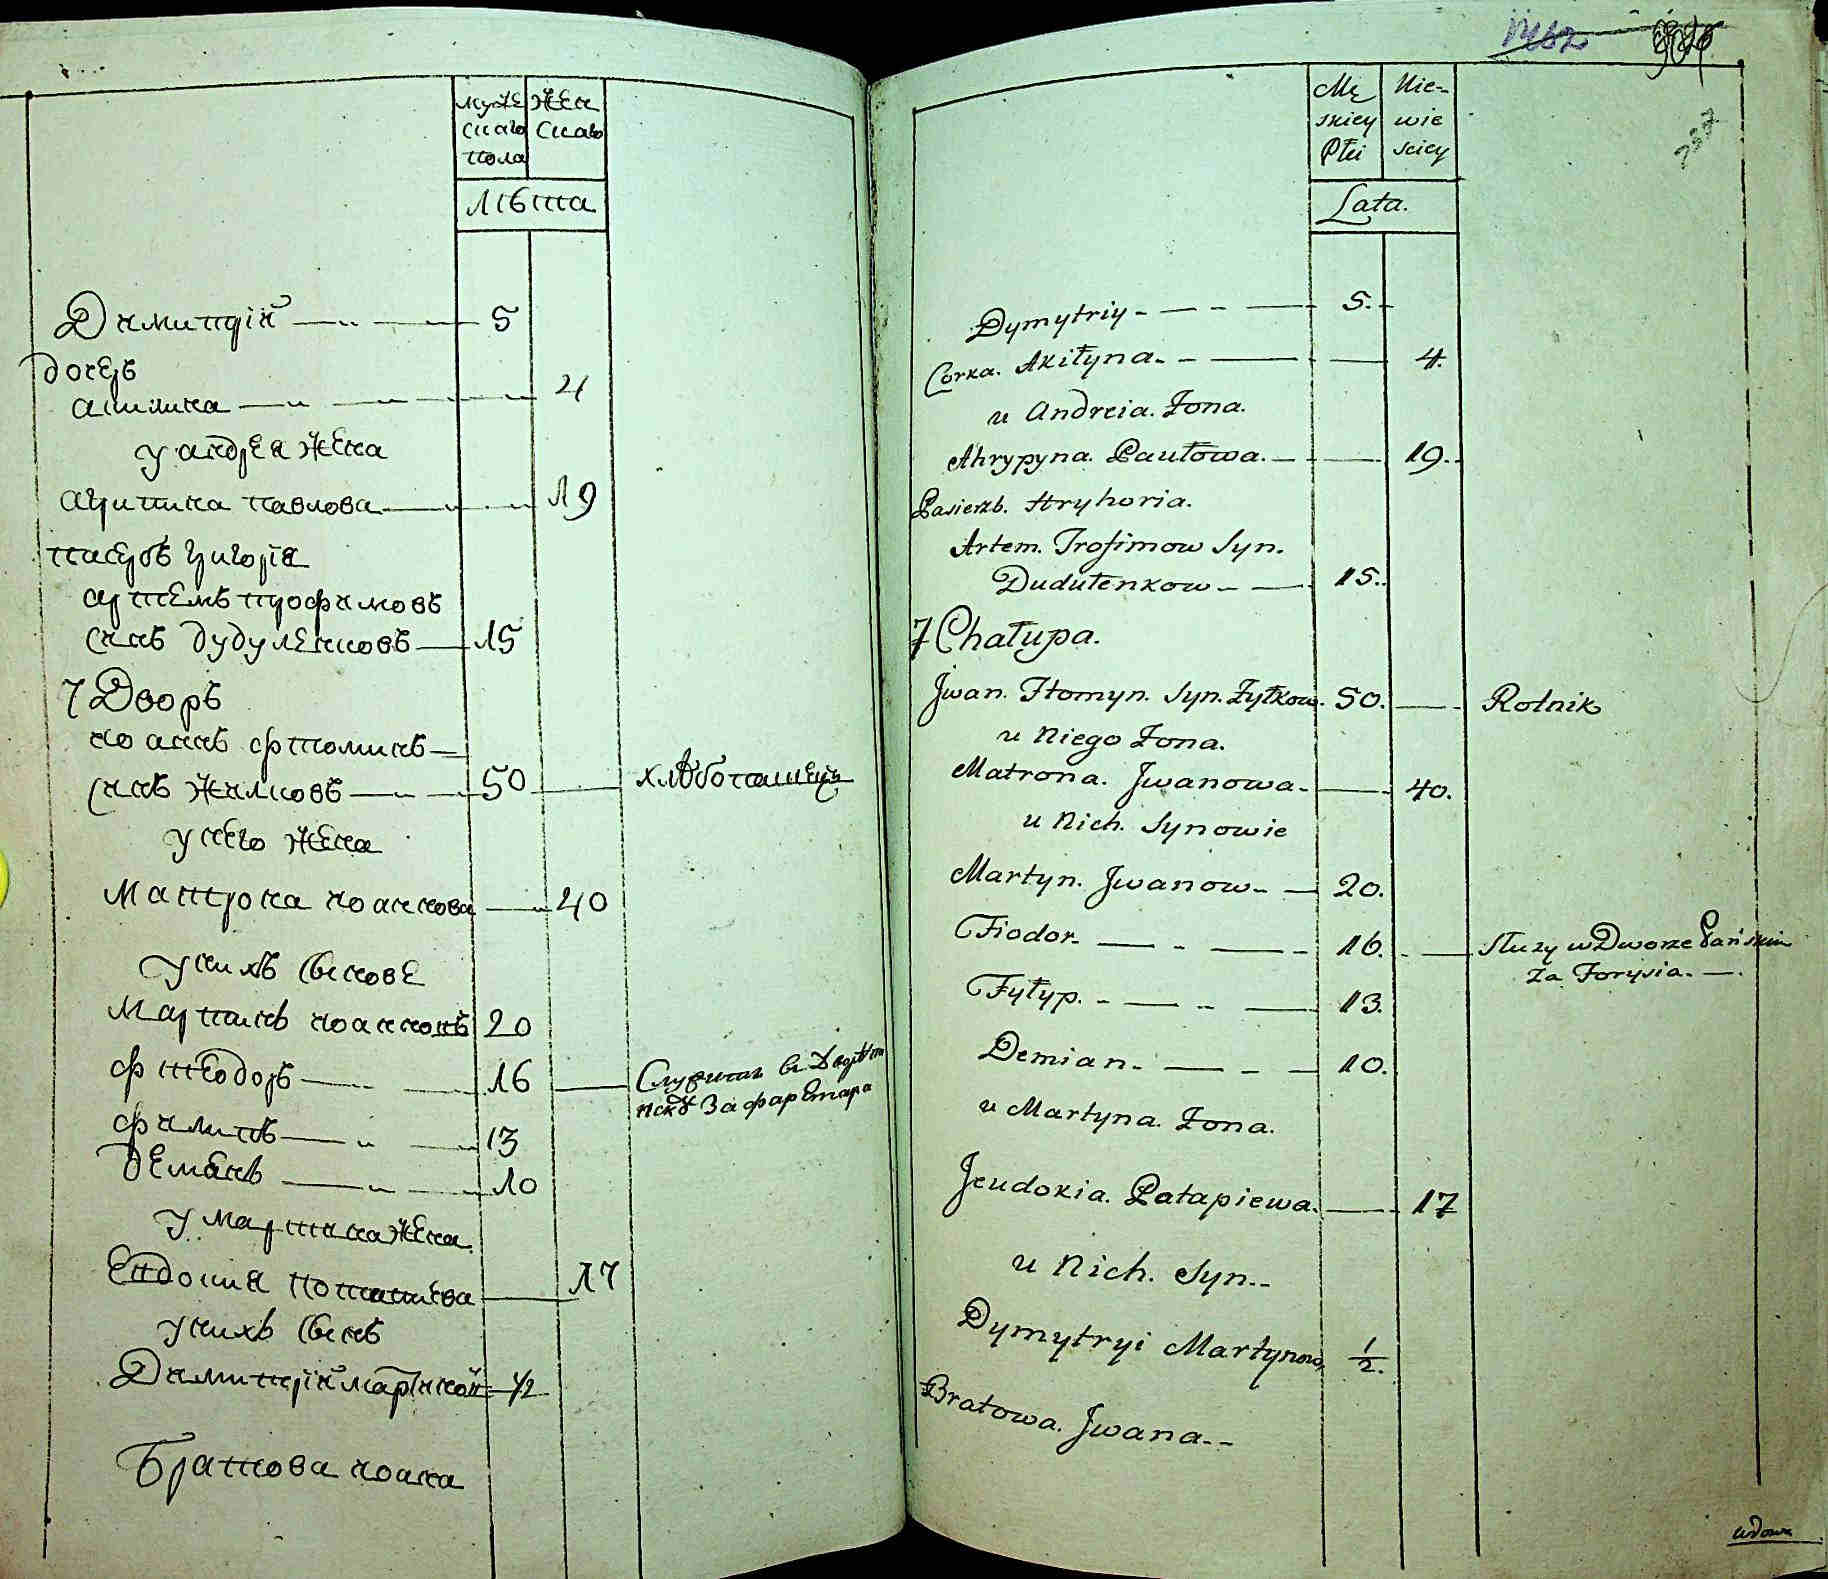 Муже
скаго
пола
Жен
скаго
лѣта
Димитрій — 5
дочерь
акилина — 4
у андрея жена
агрипина павлова — 19
пасербъ григорія
артемъ трофимовъ
синъ дудуленковъ — 15
7 Дворъ
иоаннъ фтоминъ —
синъ жилковъ — 50 — хлѣбопашецъ
у него жена
Матрона иоаннова — 40
у нихъ синове
Мартинъ иоанновъ 20
фтеодоръ — 16 — Служитъ въ
за
филипъ — 13
демянъ — 10
у мартина жена
Евдокия потапиева — 17
у нихъ синъ
Димитрій мартиновъ 1/2
Братова иоана
Mę
skiey
Płci
Nie-
wie
sciey
Lata.
Dymytriy - — - — 5.
Corka. Akiłyna. - — — 4.
u Andreia. Żona.
Ahrypyna. Pautowa. — — 19.
Pasierzb. Hryhoria.
Artem. Trofimow Syn.
Dudułenkow - — 15.
7 Chałupa.
Jwan. Htomyn. Syn. Żyłkow. 50. — Rolnik
u Niego Żona.
Matrona. Jwanowa - — 40.
u Nich. Synowie
Martyn. Jwanow - — 20.
Fiodor. — - — 16. — Służy w Dworze Pańskim
Za Forysia. —
Fyłyp. - — - — 13.
Demian. — - — 10.
u Martyna. Żona.
Jeudokia. Patapiewa. — 17
u Nich. Syn. -
Dymytryi Martynow, 1/2.
Bratowa. Jwana. -
wdowa